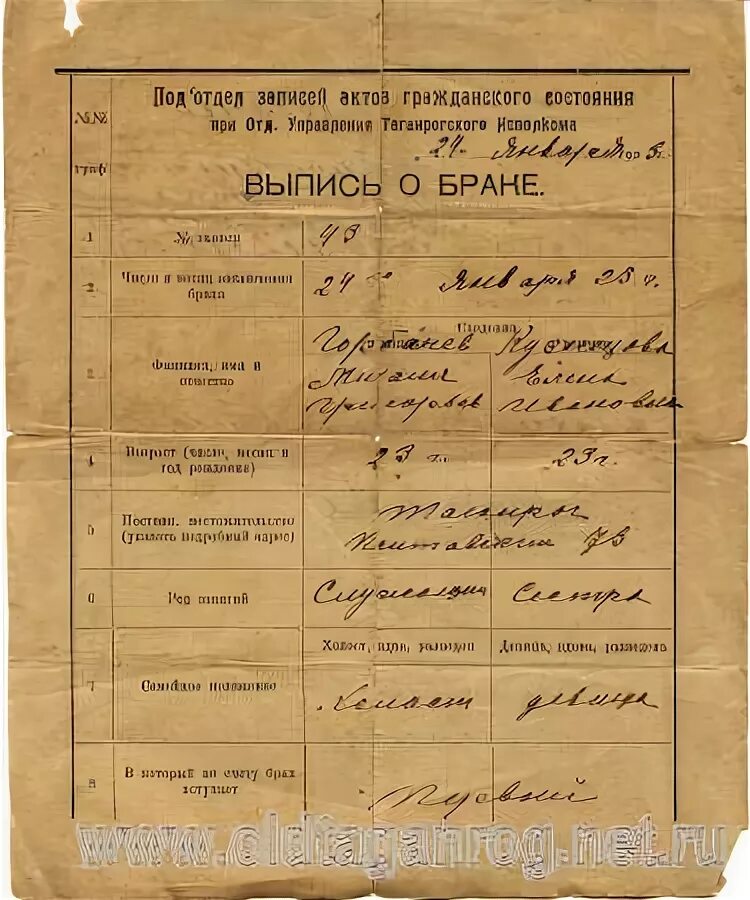 Под'отдел записей актов гражданского состояния
при Отд. Управления Таганрогского Исполкома
24 Января
№№
ВЫПИСЬ О БРАКЕ.
1 № записи 43
2 Число и месяц брака 24 Января 25 г.
Фамилия, имя и Горбанев
Елена
Ивановна
Возраст год рождения) 23 г. 23 г.
5 Постоян. местожительство 73
(указать подробный адрес)
6 Род занятий Служащий Сестра
Холост, вдов, разведен Девица, вдова, разведена
7 Семейное положение Холост девица
8 В который по счету брак вступает Первый
www.oldtaganrog.net.ru